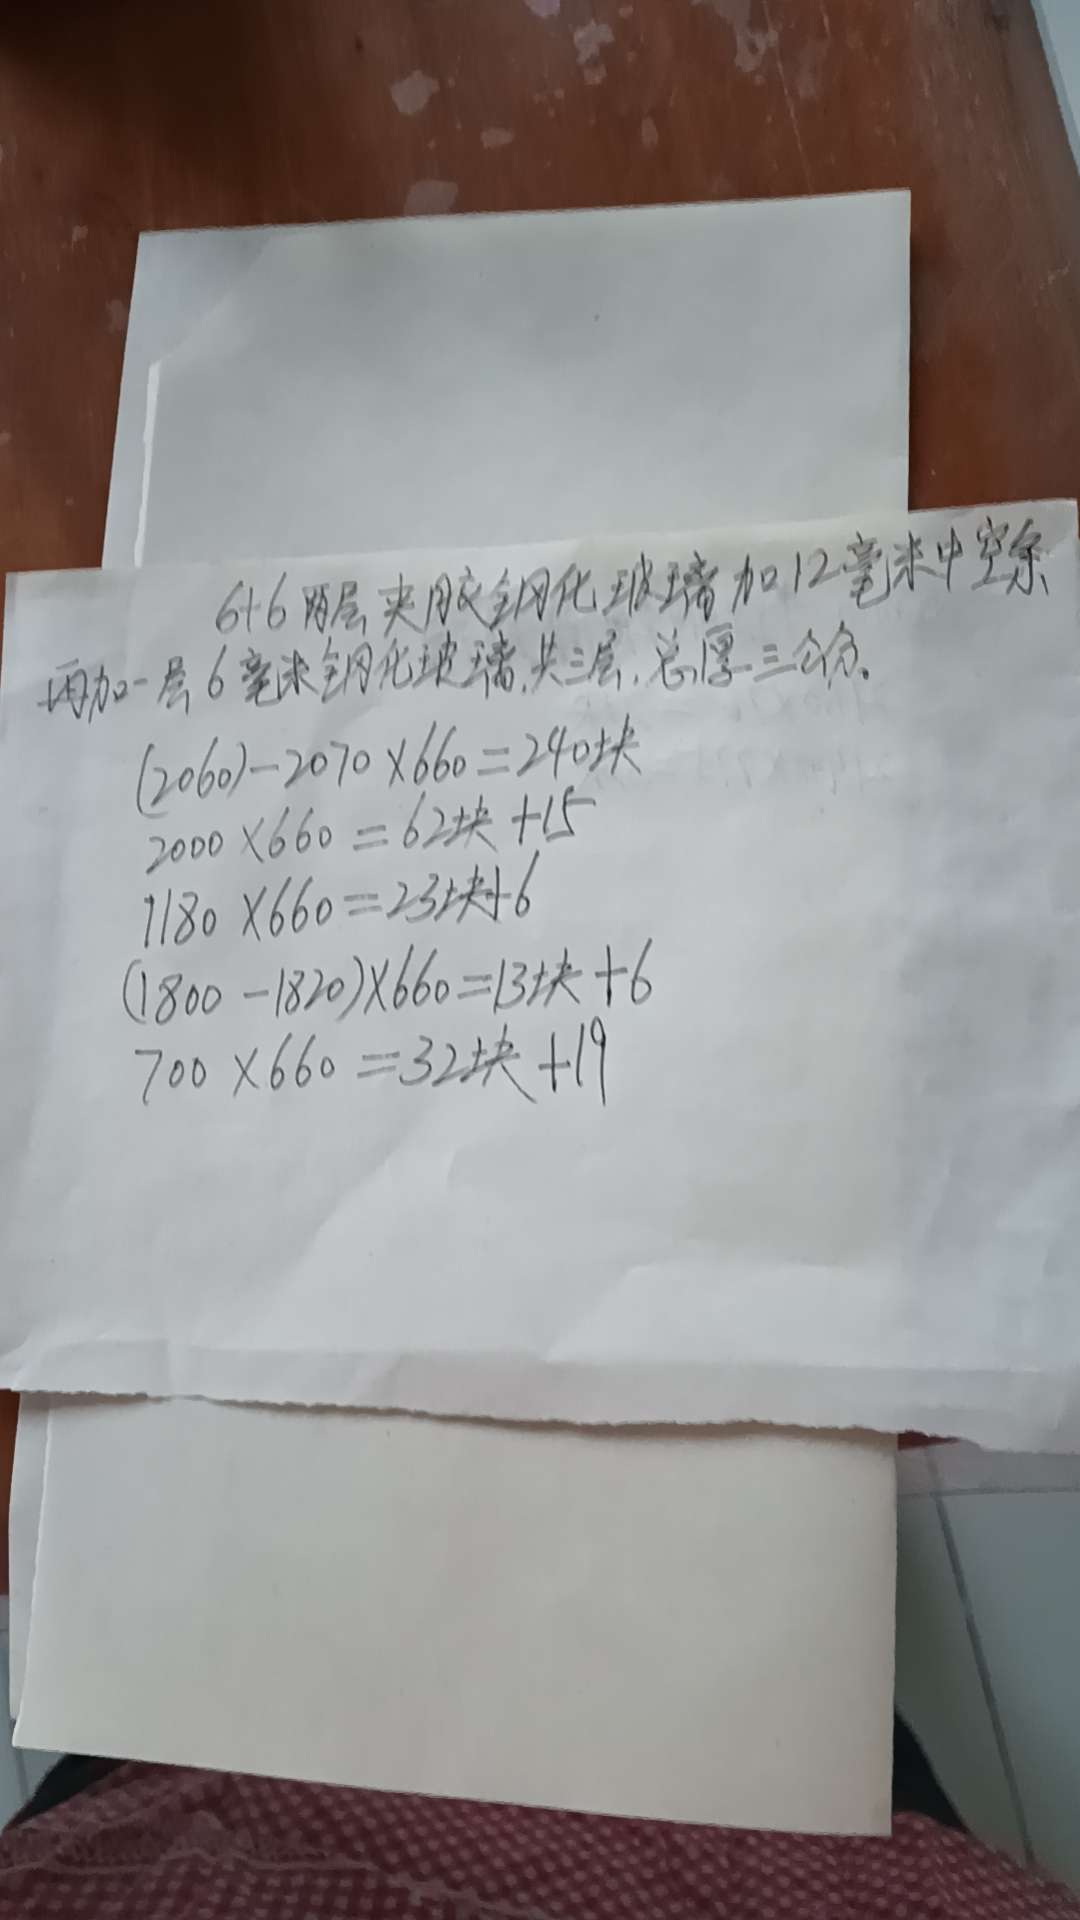 6+6两层夹胶钢化玻璃加12毫米中空条
再加一层6毫米钢化玻璃,共三层,总厚三公分。
(2060)-2070×660=240块
2000×660=62块+15
1180×660=23块+6
(1800-1820)×660=13块+6
700×660=32块+19